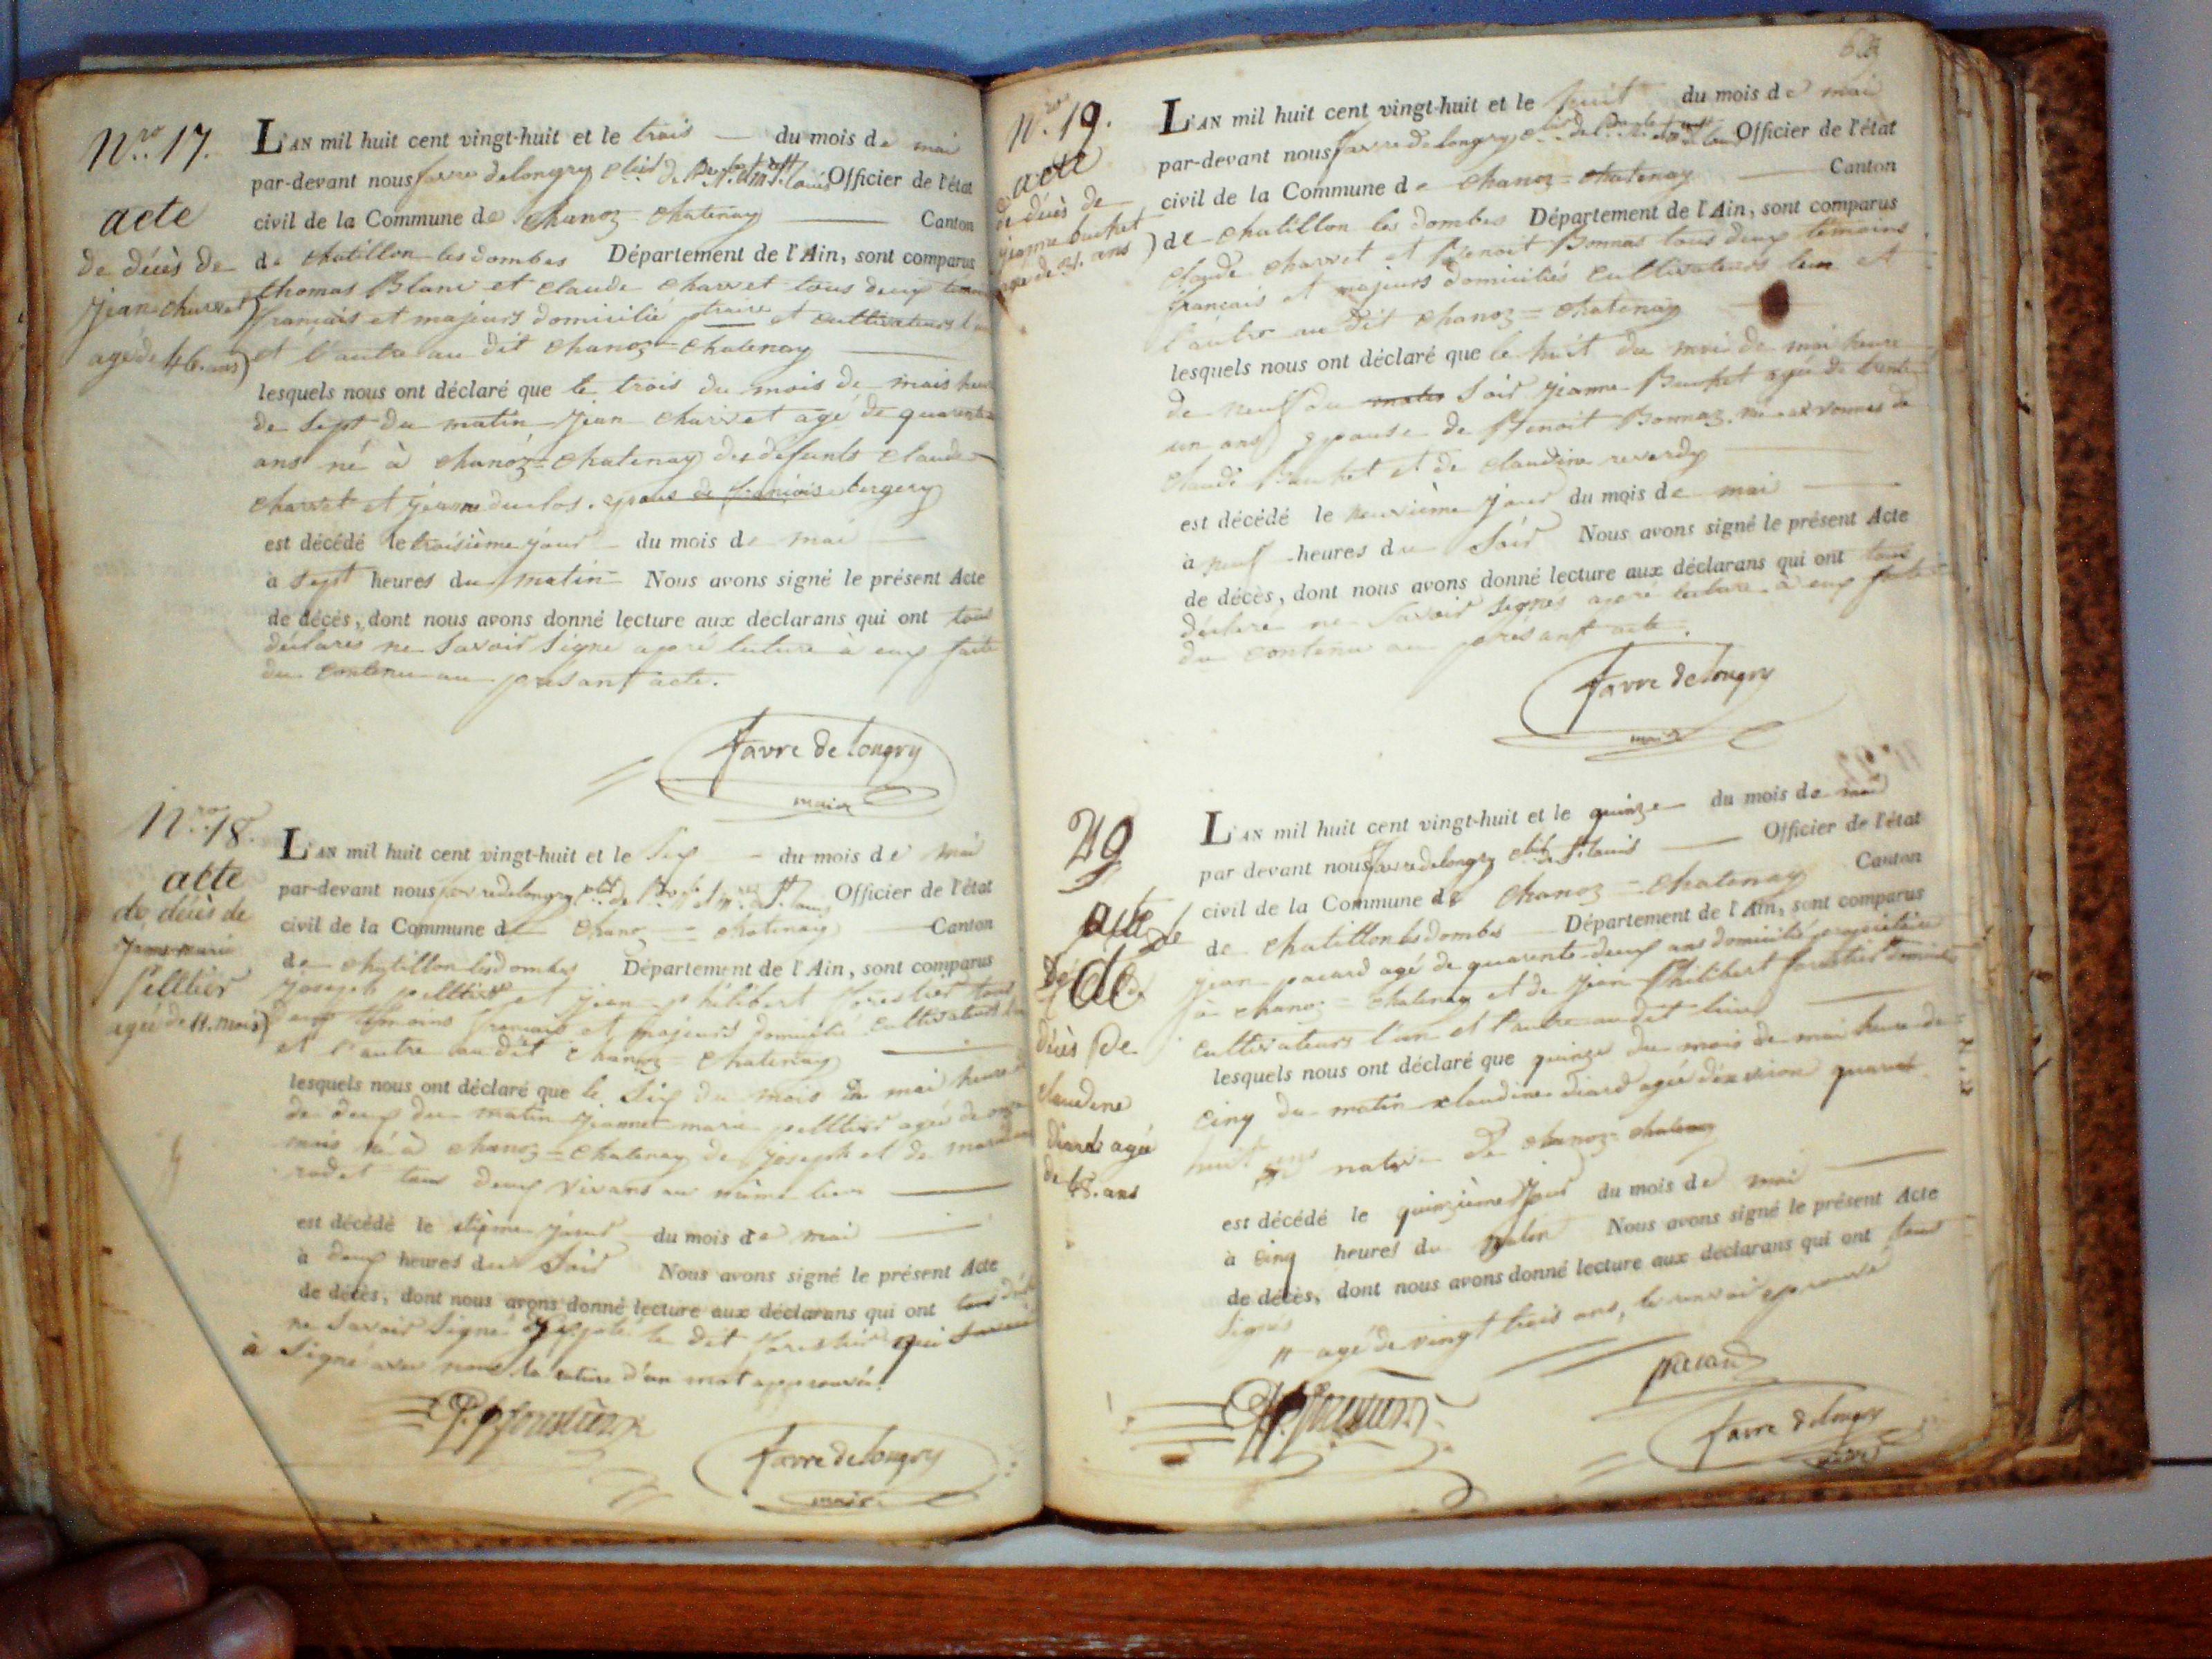 Nro 17.
acte
de décès de
jean charvet
agé de 46. ans
L'AN mil huit cent vingt-huit et le trois du mois de mai
par-devant nous favre delongry Officier de l'état
civil de la Commune de Chanoz = Chatenay Canton
de chatillon les dombes Département de l'Ain, sont comparus
thomas Blanc et claude charvet tous deux
français et majeurs domicilié et cultivateurs
et l'autre au dit chanoz = chatenay
lesquels nous ont déclaré que le trois du mois de mais
de sept du matin jean charvet agé de quarente
ans né à chanoz = chatenay des defunts claude
charvet et jeanne duclos. epous de françoise bergery
est décédé le troisième jour du mois de mai
à sept heures du matin Nous avons signé le présent Acte
de décès, dont nous avons donné lecture aux déclarans qui ont tous
déclarés ne savoir signé apré lecture à eux faite
du contenu au present acte.
favre de longry
maire
Nro 18.
acte
de décès de
marie
Pelltier
agée de 11. mois
L'AN mil huit cent vingt-huit et le six du mois de mai
par-devant nous favre delongry Officier de l'état
civil de la Commune de Chanoz = chatenay Canton
de chatillon les dombes Département de l'Ain, sont comparus
joseph pelltier et jean philibert forestier tous
deux témoins français et majeurs domicilié cultivateurs
et l'autre au dit chanoz = chatenay
lesquels nous ont déclaré que le six du mois de mai heure
de deux du matin jeanne marie pelltier agée de onze
mois né à chanoz = chatenay de joseph et de marie
rodet tous deux vivans au même lieu
est décédé le sixième jour du mois de mai
à deux heures du soir Nous avons signé le présent Acte
de décès, dont nous avons donné lecture aux déclarans qui ont tous
ne savoir signé le dit forestier qui
à signé avec nous la rature d'un mot approuvée.
favre de longry
maire
Nro 19.
acte
de décès de
jeanne buchet
agée de 31. ans
L'AN mil huit cent vingt-huit et le huit du mois de mai
par-devant nous favre delongry Officier de l'état
civil de la Commune de chanoz = chatenay Canton
de chatillon les dombes Département de l'Ain, sont comparus
claude charvet et Benoit Bonnaz tous deux témoins
français et majeurs domiciliés cultivateurs l'un et
l'autre au dit chanoz = chatenay
lesquels nous ont déclaré que le huit du mois de mai heure
de neuf du soir jeanne Buchet agée de trente
un ans épouse de Benoit Bonnaz. née de
claude Buchet et de claudine reverdy
est décédé le jour du mois de mai
à neuf heures du soir Nous avons signé le présent Acte
de décès, dont nous avons donné lecture aux déclarans qui ont tous
déclaré ne savoir signés apré lecture à eux faite
du contenu au présant acte.
favre delongry
maire
acte de
décès de
claudine
diard agée
de 48. ans
L'AN mil huit cent vingt-huit et le quinze du mois de mai
par devant nous favre delongry St. louis Officier de l'état
civil de la Commune de Chanoz = chatenay Canton
de chatillon les dombes Département de l'Ain, sont comparus
jean pacard agé de quarente-deux ans domicilié propriétaire
à chanoz = chatenay et de jean Philibert forestier
cultivateurs l'un et l'autre au dit lieu
lesquels nous ont déclaré que quinze du mois de mai heure de
cinq du matin claudine diard agée d'environ quarante
huit ans native de chanoz = chatenay
est décédé le quinzième jour du mois de mai
à cinq heures du matin Nous avons signé le présent Acte
de décès, dont nous avons donné lecture aux déclarans qui ont tous
signés
agé de vingt trois ans, le renvoi aprouvé
pacard
favre delongry
maire